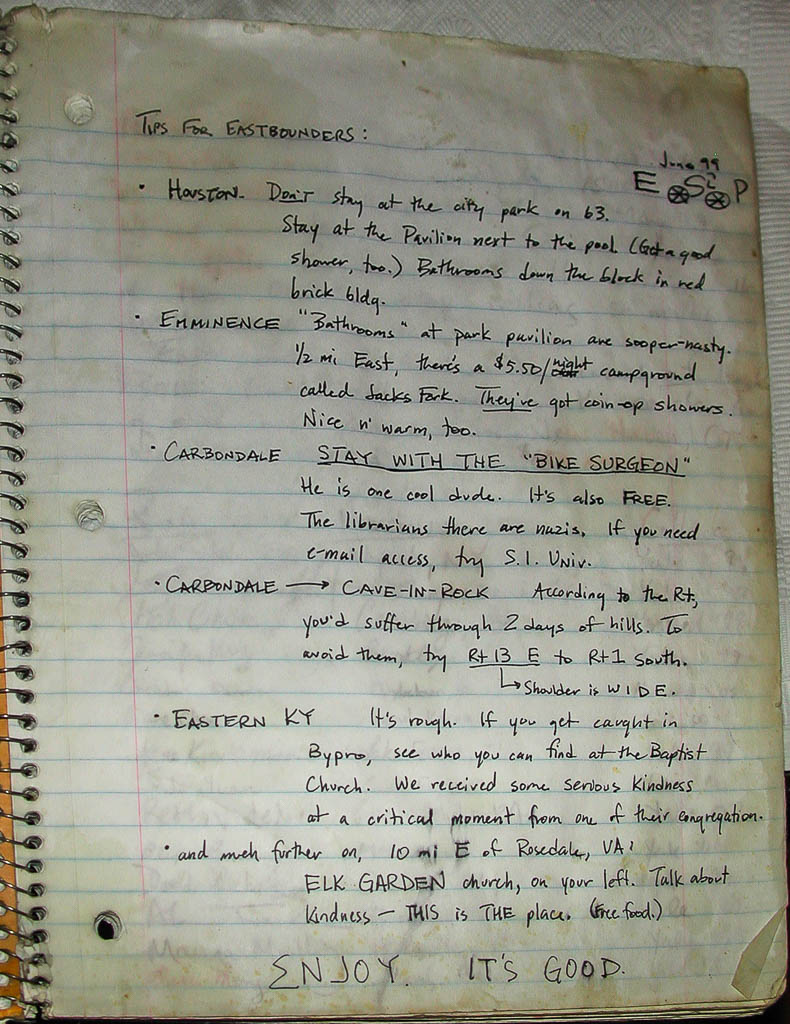 TIPS FOR EASTBOUNDERS:
June 99
E S? P
• HOUSTON- DON'T stay at the city park on 63.
Stay at the Pavilion next to the pool. (Get a good
shower, too.) Bathrooms down the block in red
brick bldg.
• EMMINENCE "Bathrooms" at park pavilion are sooper-nasty.
1/2 mi East, there's a $5.50/night campground
called Jacks Fork. They've got coin-op showers.
Nice n' warm, too.
• CARBONDALE STAY WITH THE "BIKE SURGEON"
He is one cool dude. It's also FREE.
The librarians there are nazis. If you need
e-mail access, try S.I. Univ.
• CARBONDALE → CAVE-IN-ROCK According to the Rt,
you'd suffer through 2 days of hills. To
avoid them, try Rt 13 E to Rt 1 south.
↳ Shoulder is WIDE.
• EASTERN KY It's rough. If you get caught in
Bypro, see who you can find at the Baptist
Church. We received some serious kindness
at a critical moment from one of their congregation.
• and much further on, 10 mi E of Rosedale, VA:
ELK GARDEN church, on your left. Talk about
kindness - THIS is THE place. (Free food.)
ENJOY. IT'S GOOD.